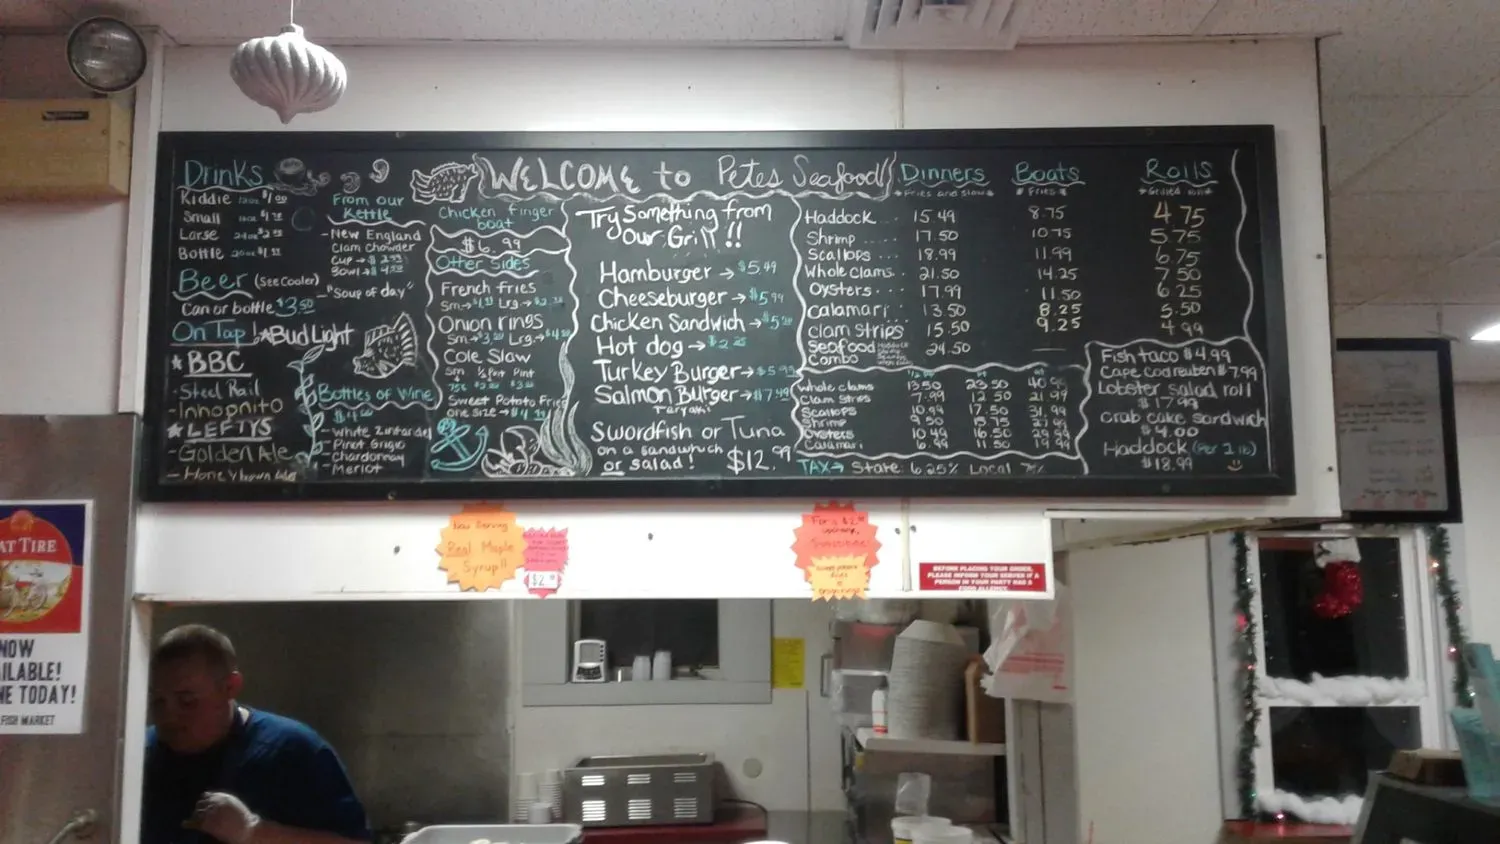 WELCOME to Petes Seafood
Drinks
Kiddie 12oz
Small 16oz
Large 24oz
Bottle 20oz
Beer (See Cooler)
Can or bottle $3.50
On Tap!
*Bud Light
* BBC
- Steel Rail
- Inhopnito
* LEFTYS
- Golden Ale
- Honey brown
From our
Kettle
- New England
Clam Chowder
Cup →
Bowl →
- "Soup of day"
Bottles of Wine
- White Zinfandel
- Pinot Grigio
- Chardonnay
- Merlot
Chicken finger
boat
$6.99
Other Sides
French fries
Sm→ Lrg→
Onion rings
Sm→ Lrg→
Cole Slaw
Sm ½ Pint Pint
Sweet Potato Fries
one size →
Try Something from
Our Grill!!
Hamburger → $5.49
Cheeseburger → $5.99
Chicken Sandwich →
Hot dog →
Turkey Burger →
Salmon Burger → $7.49
Teryaki
Swordfish or Tuna
on a sandwich
or salad! $12.99
Dinners Boats Rolls
*Fries and Slaw* *Fries* *Grilled roll*
Haddock 15.49 8.75 4.75
Shrimp 17.50 10.75 5.75
Scallops 18.99 11.99 6.75
Whole Clams 21.50 14.25 7.50
Oysters 17.99 11.50 6.25
Calamari 13.50 8.25 5.50
Clam Strips 15.50 9.25 4.99
Seafood Combo 24.50
Whole clams 13.50 23.50
Clam Strips 7.99 12.50 21.99
Scallops 10.99 17.50 31.99
Shrimp 9.50 15.75
Oysters 10.49 16.50
Calamari 6.99 11.50 19.99
TAX→ State: 6.25% Local
Fish taco $4.99
Cape Cod reuben $7.99
Lobster salad roll
$17.99
Crab cake sandwich
$4.00
Haddock (Per 1 lb)
$18.99
Now Serving
Real Maple
Syrup!!
BEFORE PLACING YOUR ORDER,
PLEASE INFORM YOUR SERVER IF A
PERSON IN YOUR PARTY HAS A
FOOD ALLERGY.
AT TIRE
NOW
AILABLE!
NE TODAY!
FISH MARKET